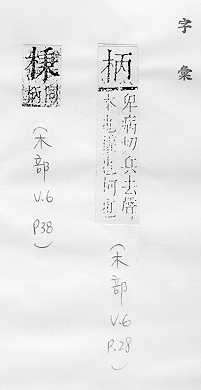 字彙
柄
卑病切兵去聲
本也權也柯也
(木部 V.6 P.28)
棅
同柄
(木部 V.6 P38)